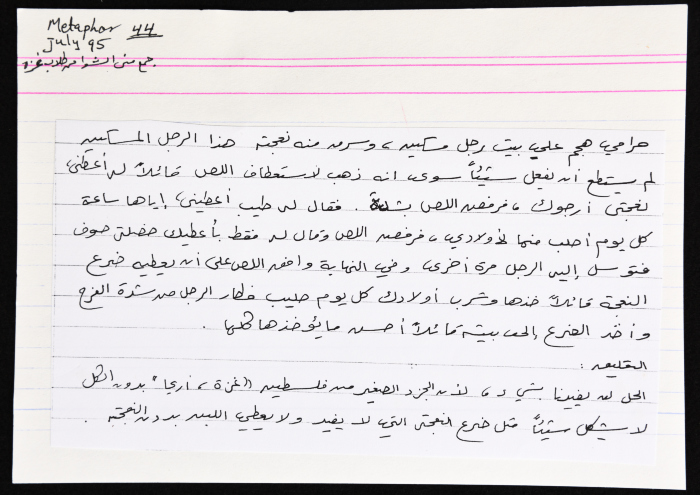 Metaphor 44
July 95
جمع منى الشوا من طلاب غزة
حرامي هجم على بيت رجل مسكين، وسرق منه نعجته هذا الرجل المسكين
لم يستطع أن يفعل شيئاً سوى أنه ذهب لاستعطاف اللص قائلاً له أعطني
نعجتي أرجوك، فرفض اللص بشدة. فقال له طيب أعطيني إياها ساعة
كل يوم أحلب منها لأولادي، فرفض اللص وقال له فقط بأعطيك خصلتي صوف
فتوسل إليه الرجل مرة أخرى، وفي النهاية وافق اللص على أن يعطيه ضرع
النعجة قائلاً خذها وشرب أولادك كل يوم حليب فطار الرجل من شدة الفرح
وأخذ الضرع إلى بيته قائلاً أحسن ما يؤخذها كلها.
التعليق:
الحل لن يفيدنا بشيء، لأن الجزء الصغير من فلسطين "(غزة، أريحا)" بدون الكل
لا يشكل شيئاً مثل ضرع النعجة التي لا يفيد ولا يعطي اللبن بدون النعجة.